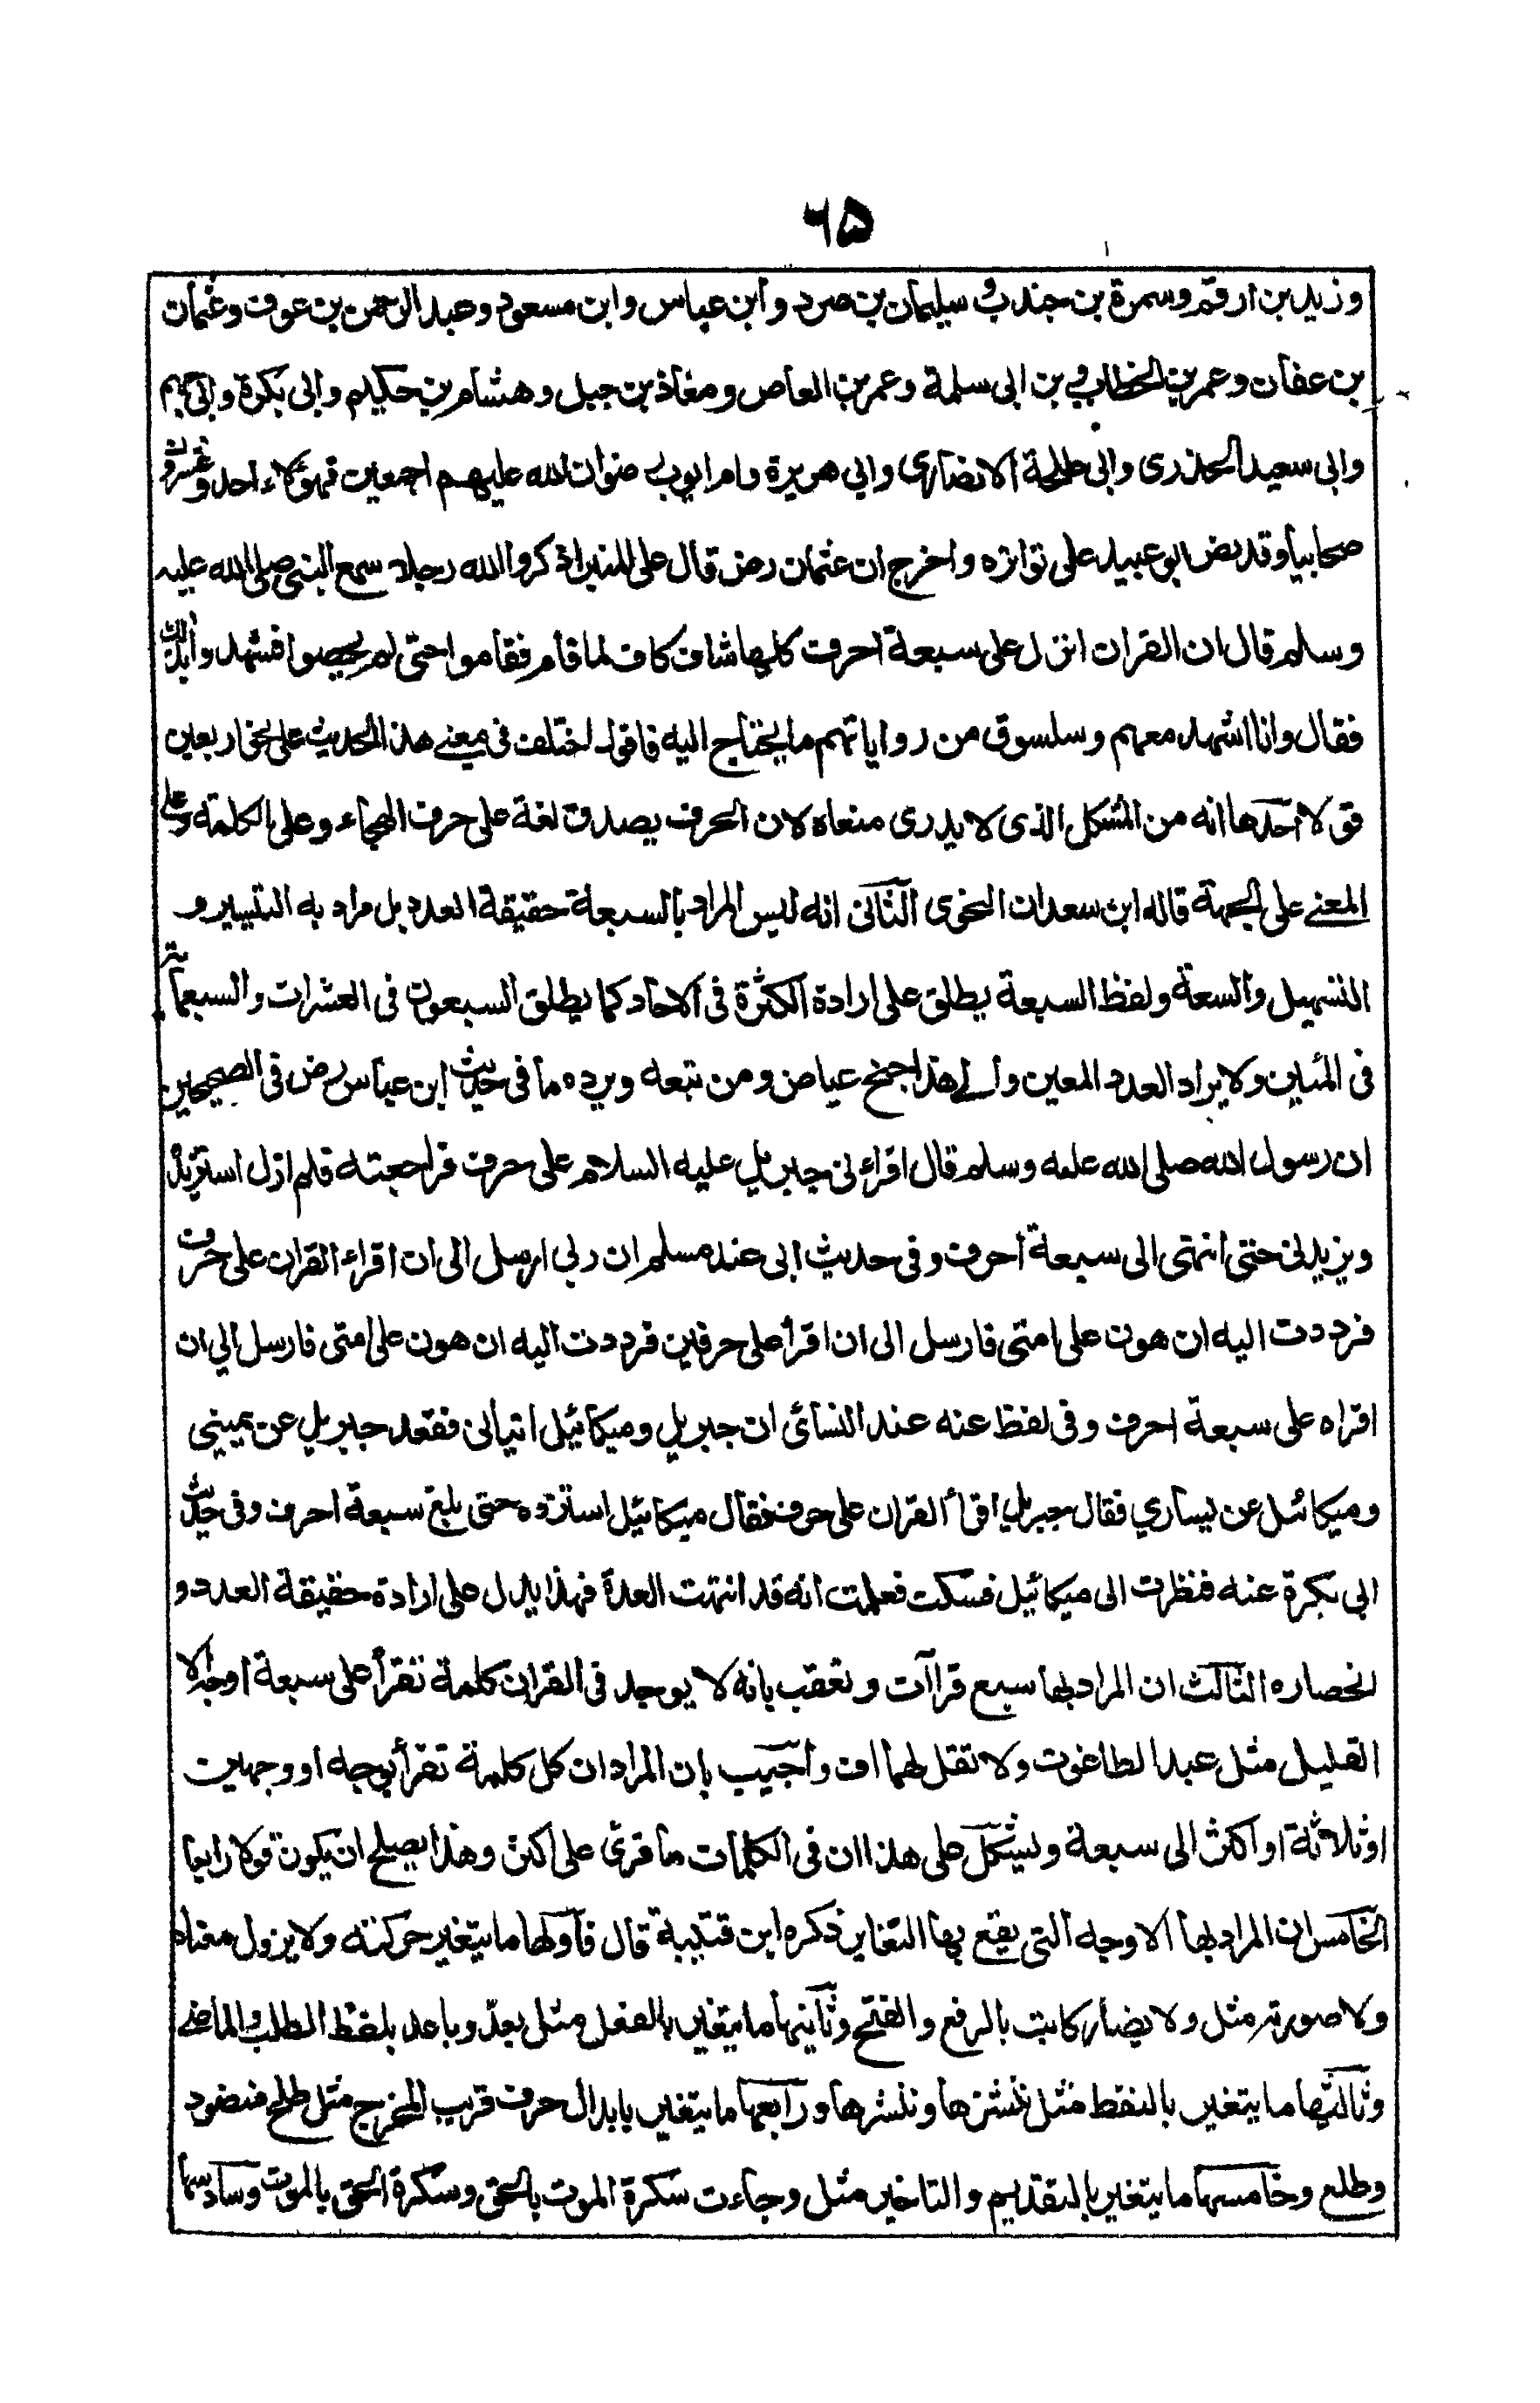 ٦٥
و زيد بن ارقم وسمرة بن جندب و سليمان بن صرد وابن عباس وابن مسعود وعبد الرحمن بن عوف وعثمان
بن عفان وعمر بن الخطاب و بن ابى سلمة وعمر بن العاص ومعاذ بن جبل وهشام بن حكيم وابى بكرة وابى جهم
وابى سعيد الخدرى وابى طلحة الانصارى وابي هريرة وام ايوب رضوان الله عليهم اجمعين فهؤلاء احد وعشرون
صحابيا وقد نص ابو عبيد على تواتره واخرج ان عثمان رض قال على المنبر اذكر والله رجلا سمع النبى صلى الله عليه
وسلم قال ان القران انزل على سبعة احرف كلها شاف كاف لما قام فقاموا حتى لم يحصوا فشهدوا بذلك
فقال وانا اشهد معهم وسلسوق من رواياتهم ما يحتاج اليه فاقول اختلف فى معنے هذا الحديث على نحو اربعين
قولا احدها انه من المشكل الذى لا يدرى معناه لان الحرف يصدق لغة على حرف الهجاء وعلى الكلمة وعلى
المعنے على الجهة قاله ابن سعدان النحوى الثانى انه ليس المراد بالسبعة حقيقة العدد بل مراد به التيسير و
التسهيل والسعة ولفظ السبعة يطلق على ارادة الكثرة فى الاحاد كما يطلق السبعون فى العشرات والسبعمائة
فى المئين ولا يراد العدد المعين والے هذا جمح عياض ومن تبعه ويرده ما فى حديث ابن عباس رض فى الصحيحين
ان رسول الله صلى الله عليه وسلم قال اقراءنى جبريل عليه السلام على حرف فراجعته فلم ازل استزيده
ويزيدنى حتى انتهى الى سبعة احرف وفى حديث ابى عند مسلم ان ربي ارسل الى ان اقراء القران على حرف
فرددت اليه ان هون على امتى فارسل الى ان اقرأ على حرفين فرددت اليه ان هون على امتى فارسل الي ان
اقراه على سبعة احرف وفى لفظ عنه عند النسائى ان جبريل وميكائيل اتيانى فقعد جبريل عن يمينى
وميكائيل عن يساري فقال جبريل اقرأ القران على حرف فقال ميكائيل استزده حتى بلغ سبعة احرف وفى حديث
ابى بكرة عنه فنظرت الى ميكائيل فسكت فعلمت انه قد انتهت العدة فهذا يدل على ارادة حقيقة العدد و
انحصاره الثالث ان المراد بها سبع قراآت وتعقب بانه لا يوجد فى القران كلمة تقرأ على سبعة اوجه الا
القليل مثل عبد الطاغوت ولا تقل لهما اف واجيب بان المراد ان كل كلمة تقرأ بوجه او وجهين
او ثلاثة او اكثر الى سبعة ويشكل على هذا ان فى الكلمات ما قرئ على اكثر وهذا يصلح ان يكون قولا رابعا
الخامس ان المراد بها الاوجه التى يقع بها التغاير ذكره ابن قتيبة قال فاولها ما يتغير حركته ولا يزول معناه
ولا صورته مثل ولا يضار كاتب بالرفع والفتح وثانيها ما يتغير بالفعل مثل بعد وباعد بلفظ الطلب والماضے
وثالثها ما يتغير بالنقط مثل ننشزها وننشرها ورابعها ما يتغير بابدال حرف قريب المخرج مثل طلح منضود
وطلع وخامسها ما يتغير بالتقديم والتاخير مثل وجاءت سكرة الموت بالحق وسكرة الحق بالموت وسادسها